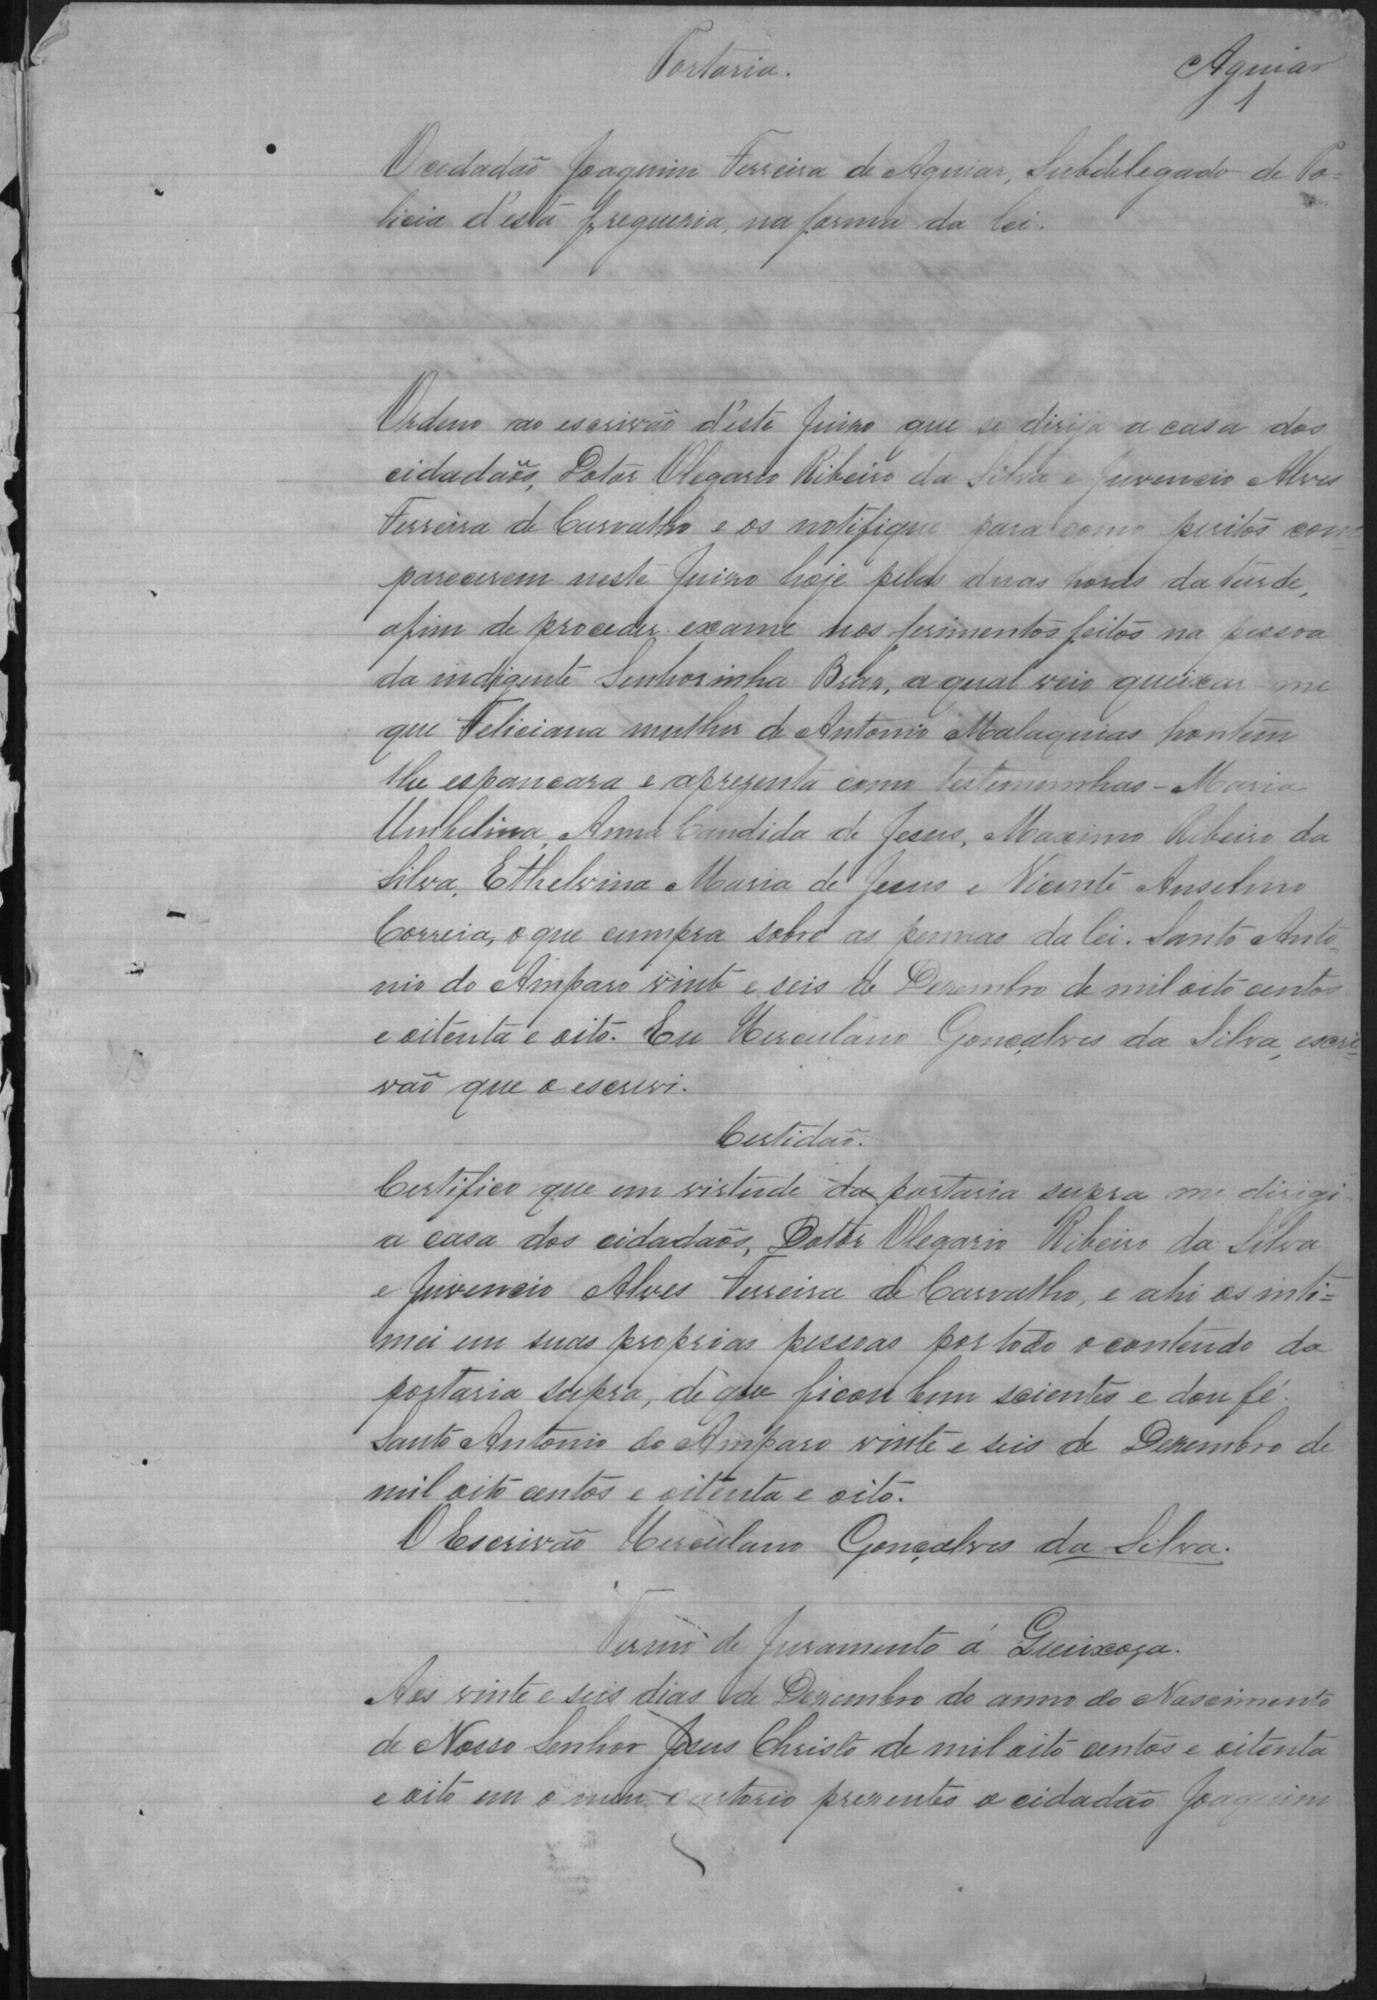 Portaria.
Aguiar
1
O cidadão Joaquim Ferreira de Aguiar, Subdelegado de Po=
licia d'esta freguezia, na forma da lei.
Ordeno ao escrivão d'este Juizo que se dirija a casa dos
cidadaõs, Dotor Olegario Ribeiro da Silva e Juvencio Alves
Ferreira de Carvalho e os notifique para como peritos com=
parecerem neste Juizo hoje pelas duas horas da tarde,
afim de proceder exame nos ferimentos feitos na pessoa
da indigente Senhorinha Braz, a qual veio queixar-me
que Feliciana mulher de Antonio Malaquias hontem
lhe espancara e aprezenta como testemunhas - Maria
Umbelina, Anna Candida de Jesus, Maximo Ribeiro da
Silva, Ethelvina Maria de Jesus e Vicente Anselmo
Correia, o que cumpra sobre as pennas da lei. Santo Anto=
nio do Amparo vinte e seis de Dezembro de mil oito centos
e oitenta e oito. Eu Herculano Gonçalves da Silva, escri=
vaõ que o escrevi.
Certidaõ.
Certifico que em virtude da portaria supra me dirigi
a casa dos cidadaõs, Dotor Olegario Ribeiro da Silva
e Juvencio Alves Ferreira de Carvalho, e ahi os inti=
mei em suas proprias pessoas por todo o contendo da
portaria supra, de que ficou bem scientes e dou fé.
Santo Antonio do Amparo vinte e seis de Dezembro de
mil oito centos e oitenta e oito.
O Escrivão Herculano Gonçalves da Silva.
Termo de Juramento á Queixoza.
Aos vinte e seis dias de Dezembro do anno do Nascimento
de Nosso Senhor Jesus Christo de mil oito centos e oitenta
e oito em o meu cartorio prezentes o cidadão Joaquim